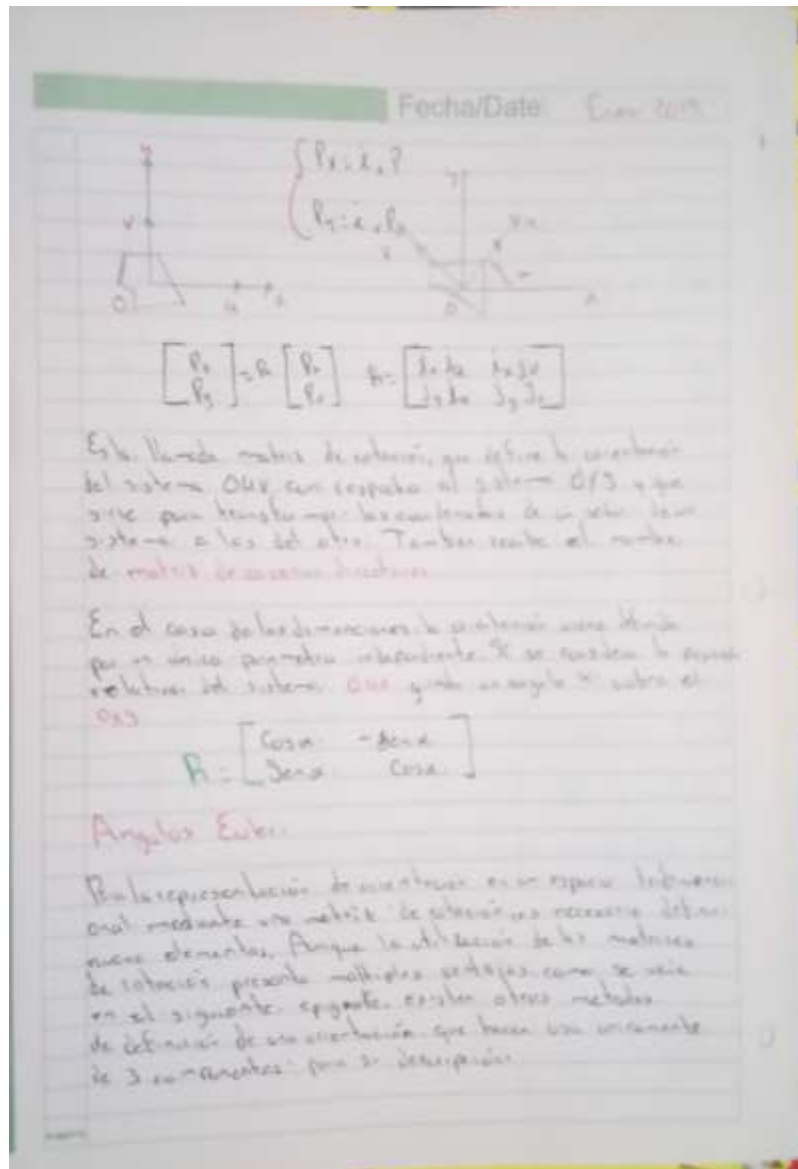 Fecha/Date: Enero 2019
y
Px = ix P
y
v
Py = 
O u x
O x
[Px Py] = R [Pu Pv] R = [ix iu ix jv jy iu jy jv]
Es la llamada matriz de rotación, que define la orientación
del sistema OUV con respecto al sistema OXY y que
sirve para transformar las coordenadas de un vector de un
sistema a las del otro. Tambien recibe el nombre
de matriz de cosenos directores
En el caso de las dimenciones, la orientación viene
por un único parametro independiente. Si se considera la
relativa del sistema OUV girado un angulo α sobre el
OXY
R = [Cosα -Senα
Senα Cosα]
Angulos Euler.
Para la representación de orientación en un espacio tridimensi
onal mediante una matriz de rotación es necesario definir
nueve elementos. Aunque la utilización de las matrices
de rotación presente multiples ventajas, como se
en el siguiente epigrafe, existen otros metodos
de definición de una orientación que hacen uso unicamente
de 3 componentes para su descripción.